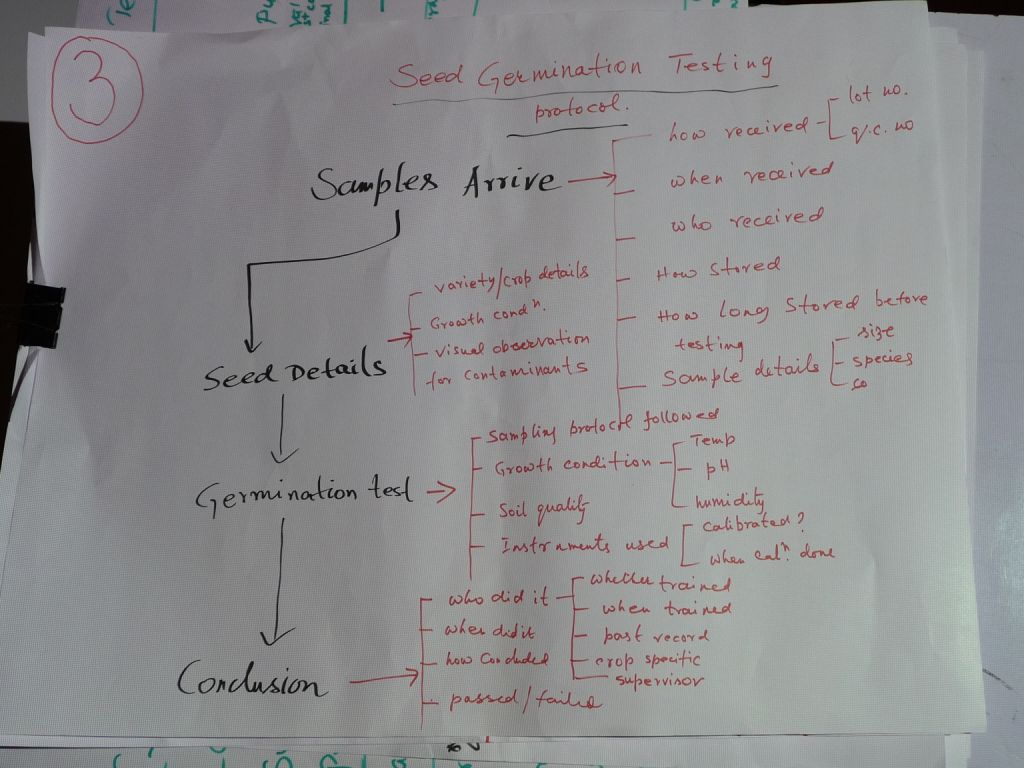 3
Seed Germination Testing
protocol.
Samples Arrive
how received
lot no.
q.c. no
when received
who received
How Stored
How long Stored before
testing
Sample details
size
species
Seed Details
variety/crop details
Growth condⁿ.
visual observation
for contaminants
Germination test
Sampling protocol followed
Growth condition
Temp
pH
humidity
Soil quality
Instruments used
Calibrated?
when calⁿ. done
Conclusion
who did it
whether trained
when trained
past record
crop specific
supervisor
when did it
how Concluded
passed/failed